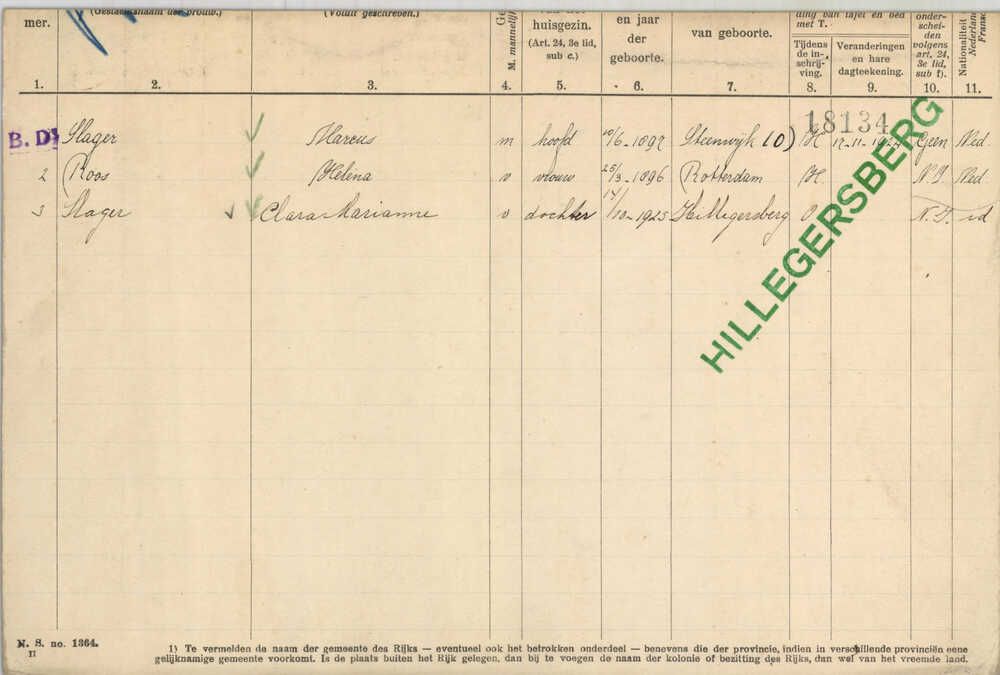 mer.
(Geslachtsnaam der vrouw.)
(Voluit geschreven.)
M. mannelijk
huisgezin.
(Art. 24, 3e lid,
sub c.)
en jaar
der
geboorte.
van geboorte.
ding van tafel en bed
met T.
Tijdens
de in-
schrij-
ving.
Veranderingen
en hare
dagteekening.
onder-
schei-
den
volgens
art. 24,
3e lid,
sub f).
Nationaliteit
1. 2. 3. 4. 5. 6. 7. 8. 9. 10. 11.
18134
B. D. Slager Marcus m hoofd 10/6-1892 Steenwijk (O) H Geen Ned.
2 Roos Helena v vrouw 25/3-1896 Rotterdam H. N.I. Ned
3 Slager Clara Marianne v dochter 14/10-1925 Hillegersberg O N.I. id
HILLEGERSBERG
N. S. no. 1364.
II
1) Te vermelden de naam der gemeente des Rijks — eventueel ook het betrokken onderdeel — benevens die der provincie, indien in verschillende provinciën eene
gelijknamige gemeente voorkomt. Is de plaats buiten het Rijk gelegen, dan bij te voegen de naam der kolonie of bezitting des Rijks, dan wel van het vreemde land.